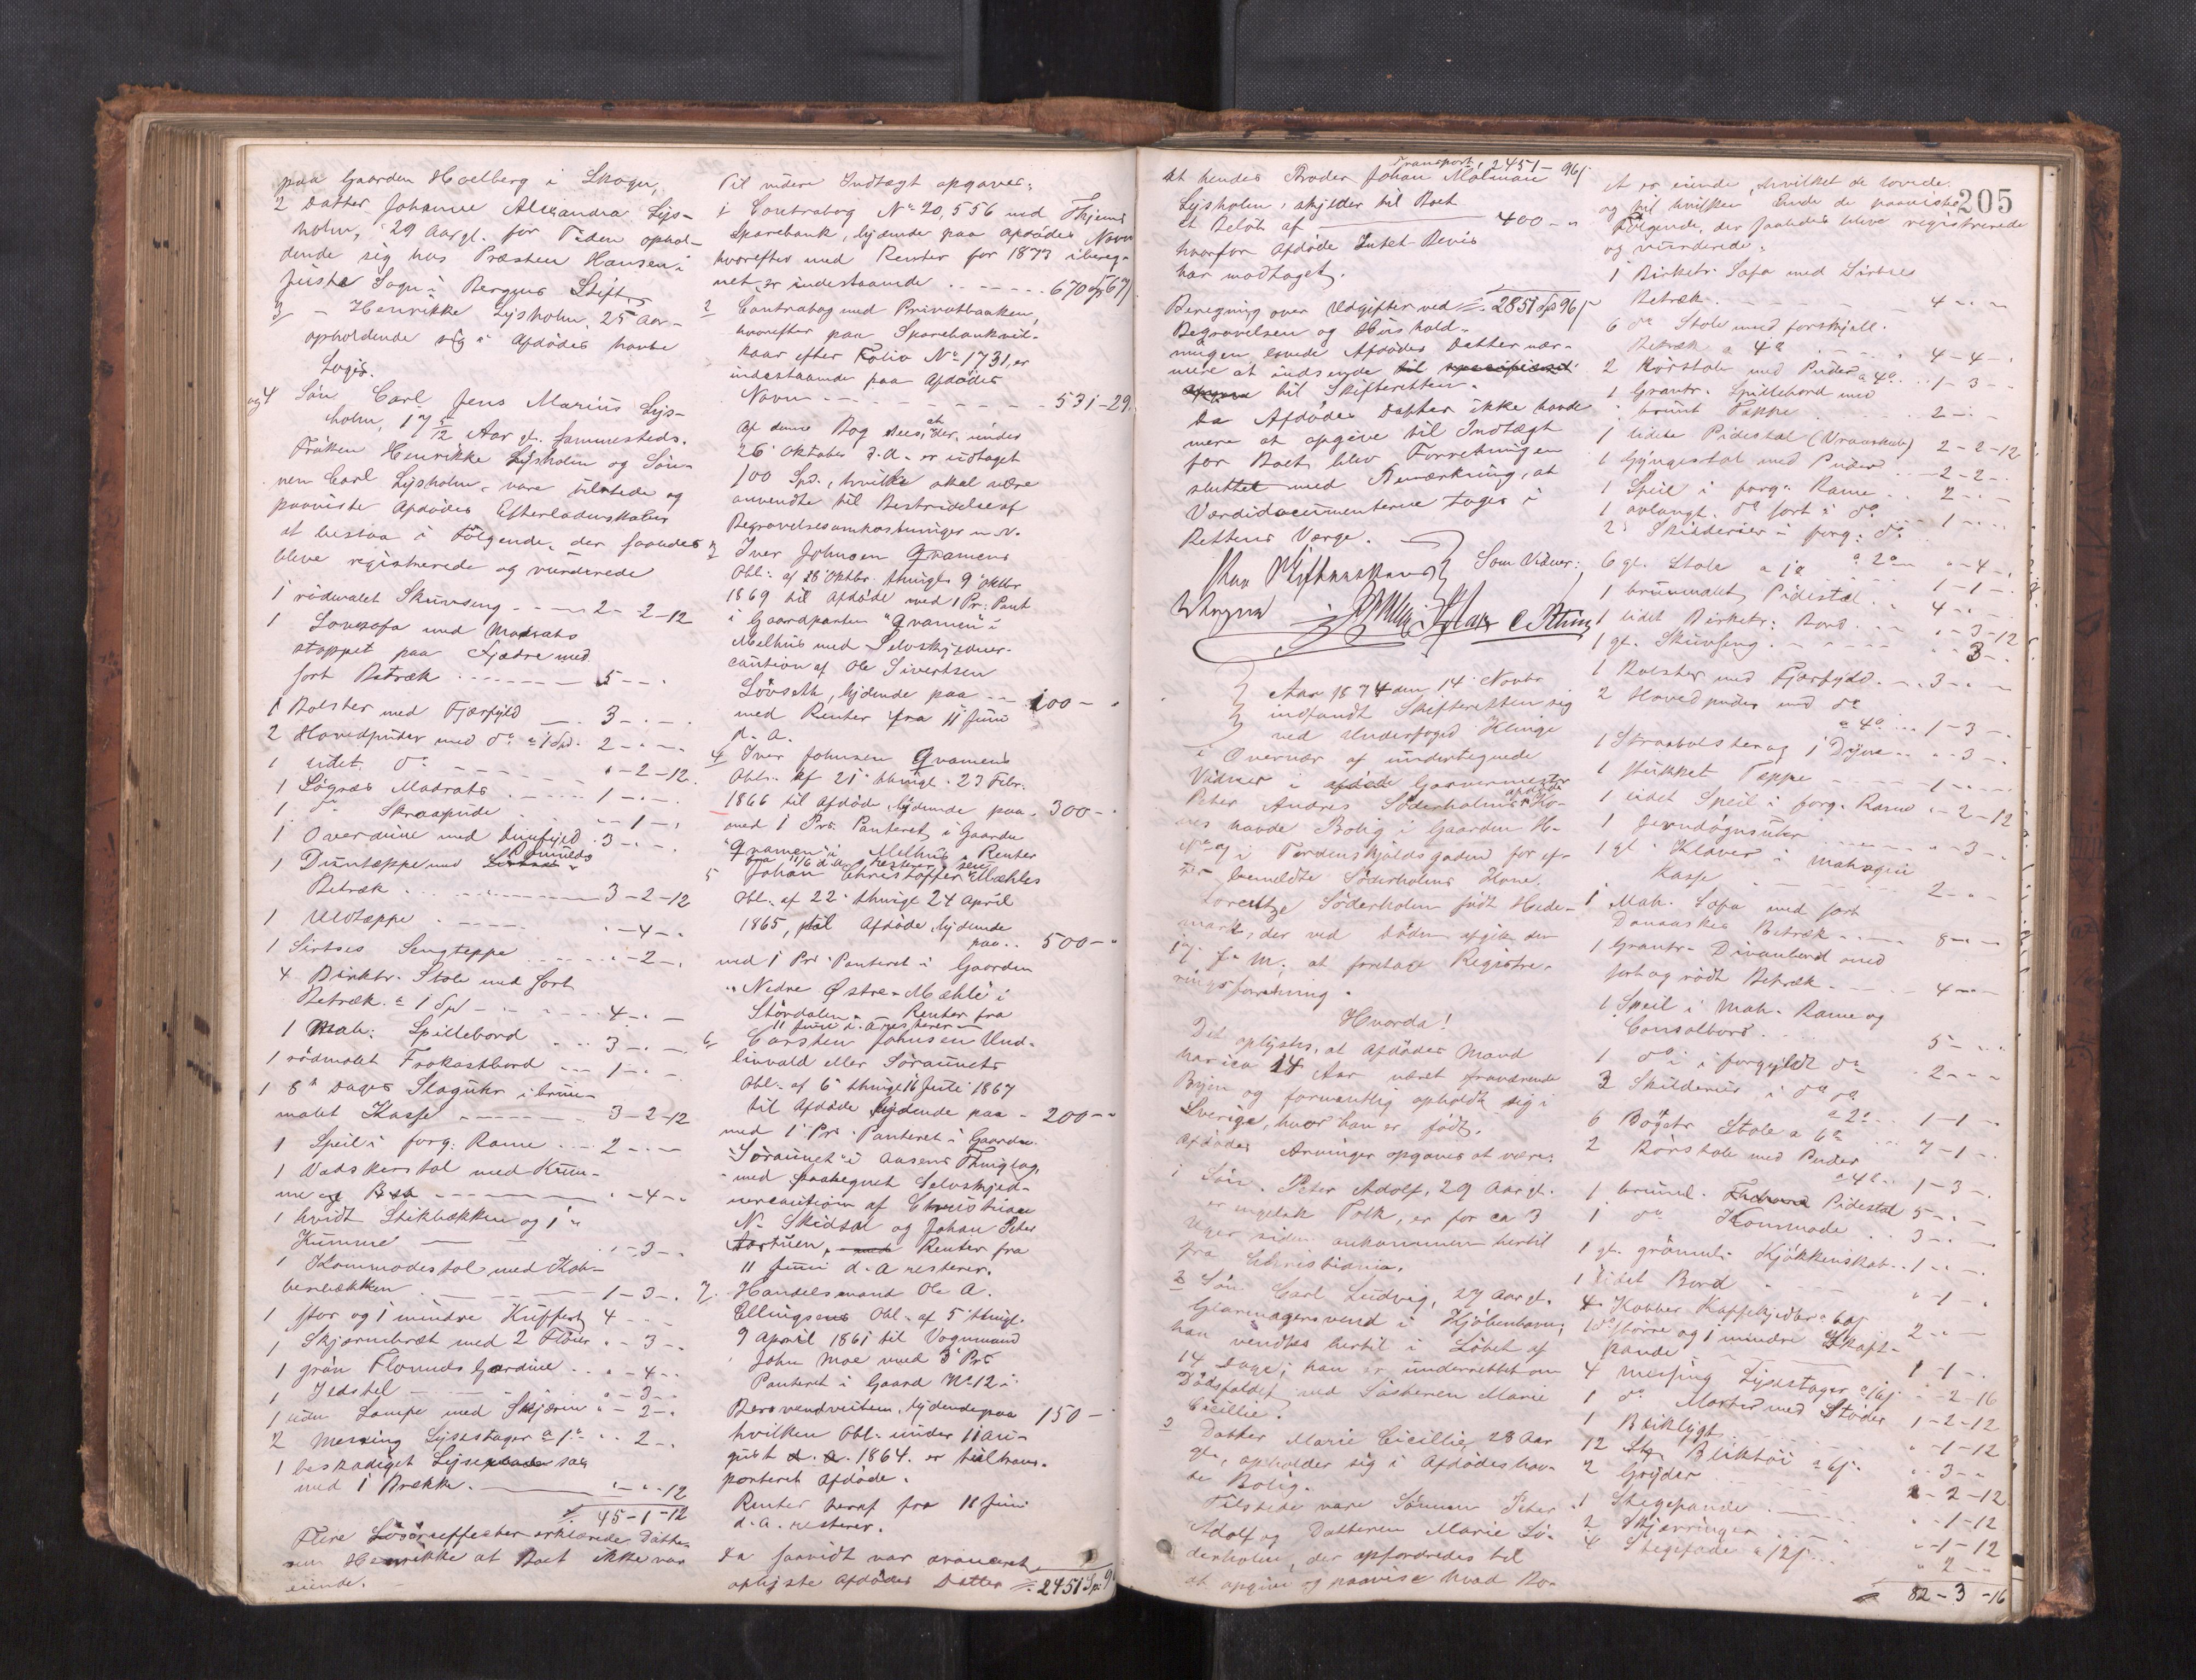 paa Gaarden Hoelberg i Skogn,
2 Datter Johanne Alexandra Lys-
holm, 29 Aar gl. for Tiden ophol-
dende sig hos Præsten Hansen i
Sogn i Bergens Stift,
3 - Henrikke Lysholm, 25 Aar -
opholdende sig i Afdødes havte
Logis.
og 4 Søn Carl Jens Marius Lys-
holm, 17 5/12 Aar gl. sammesteds.
Frøken Henrikke Lysholm og Søn-
nen Carl Lysholm, vare tilstede og
paaviste Afdødes Efterladenskaber
at bestaa i Følgende, der saaledes
bleve registrerede og vurderede
1 rødmalet Skuvseng - - - 2 - 2 - 12
1 Sovesofa med Madrats
stoppet paa Fjædre med
sort Betræk - - - 5 - - .
1 Bolster med Fjærfyld - . 3 - . - .
2 Hovedpuder med do a 1 Spd. 2 - . - .
1 lidet do - - - . - 2 - 12.
1 Søgræs Madrats . - - - 1 - . - .
1 " Skraapude . - - 1 - .
1 Overdüne med Dunfyld . 3 - . - .
1 Düntæppe med Bomulds
Betræk - - - 3 - 2 - 12
1 Uldtæppe . - - - . - 4 - .
1 Sirtses Sengteppe . . . . - 2 - .
4 Birktr. Stole med sort
Betræk. a 1 Spd - . - - 4 - . -
1 Mah: Spillebord . . . 3 - . - .
1 rødmalet Frokostbord - - 1 - . -
1 8te Dages Slaguhr i brun-
malet Kasse - - - 3 - 2 - 12
1 Speil i forg: Rame . . . 2 - . -
1 Vadskerstol med Kum-
me og - - - . - 4 - .
1 hvidt Stikbækken og 1 "
Kumme - - - . . - 3 - .
1 Kommodestol med Kob-
berbækken . - - - 1 - 3 - .
1 stor og 1 mindre Kuffert 4 - - -
1 Skjærmbræt med 2 Fløier . . - 3 - .
1 grøn Flonuds Gardine - . . . - 4 - .
1 Ildstel - - - . - 3 - .
1 liden Lampe med Skjærm . - 2 - .
2 Messing Lysestager a 1 . . . 2 - .
1 beskadiget Lysesax
med 1 Brække . - - - . - . - 12
45 - 1 - 12
Flere Løsøreeffecter erklærede Datte-
ren Henrikke at Boet ikke var
eiende.
Til videre Indtægt opgaves:
1 Contrabog No 20,556 med Thjems
Sparebank, lydende paa Afdødes Navn
hvorefter med Renter for 1873 ibereg-
net, er indestaaende . - - - 670 Spd 67 s
2 Contrabog med Privatbanken,
hvorefter paa Sparebankvil-
kaar efter Folio No 1731, er
indestaaende paa Afdødes
Navn - - - 531 - 29.
Af denne Bog sees, at der, under
26 Oktober d. A. er udtaget
100 Spd., hvilke skal være
anvendte til Bestridelse af
Begravelsesomkostninger m. v.
3 Iver Johnsen Qvamens
Obl: af 28 Oktbr. thingl. 9 Oktbr
1869 til Afdøde med 1 Pr: Pant
i Gaardparten "Qvamen" i
Melhus med Selvskyldner-
caution af Ole Sivertsen
Løvseth, lydende paa - - 100 - .
med Renter fra 11 Juni
d. A.
4 Iver Johnsen Qvamens
Obl:. af 21 thingl. 23 Febr.
1866 til Afdøde, lydende paa . 300 - .
med 1 Pr: Panteret, i Gaarden
"Qvamen" i Melhus. Renter
fra 11/6 d. A. resterer.
5 Johan Christoffersen Mæhles
Obl. af 22 thingl 24 April
1865, til Afdøde, lydende
paa . . 500 - .
med 1 Pr: Panteret i Gaarden
"Nedre Østre-Mæhle" i
Stördalen. - Renter fra
11 Juni d. A. resterer -
6 Carsten Johnsen Und-
linvald eller Søraunets
Obl. af 6 thingl 16 Juli 1867
til Afdøde lydende paa - 200 - -
med 1 Pr: Panteret i Gaarden
"Søraunet" i Aasens Thinglag,
med paategnet Selvskyld-
nercaution af Christian
N. Skidsæ og Johan Peter
Aartuen, - Renter fra
11 Juni d. A resterer.
7. Handelsmand Ole A.
Ellingsens Obl. af 5 thingl.
9 April 1861 til Vognmand
John Moe med 3 Pr:
Panteret i Gaard No 12 i
Bersvendveiten, lydende paa 150 -
hvilken Obl: under 11 Au-
gust 1864. er trans-
porteret Afdøde.
Renter heraf fra 11 Juni
d. A. resterer.
Da saavidt var avanceret,
oplyste Afdødes Datter 2451 Sp: 9
Transport, 2451 - 96 s
at hendes Broder Johan Molman
Lysholm, skylder til Boet
et Beløb af - - - 400 - "
hvorfor Afdøde Intet-Bevis
har modtaget.
2851 Spd 96 s
Beregning over Udgifter ved
Begravelsen og Hushold-
ningen lovede Afdødes Datter nær-
mere at indsende
til Skifteretten.
Da Afdødes Datter ikke havde
mere at opgive til Indtægt
for Boet, blev Forretningen
sluttet med Bemærkning, at
Værdidocumenterne toges i
Rettens Værge.
Som Vidner:
Aar 1874 den 14 Novbr
indfandt Skifteretten sig
ved Underfoged Klinge
i Overvær af undertegnede
Vidner i Garvermester
Peter Andres Søderholms afdøde Ko-
nes havde Bolig i Gaarden
i Tordenskjoldsgaden for ef-
ter bemeldte Søderholms Kone,
Lorentze Söderholm født Hede-
mark, der ved Døden afgik den
17 f. M; at foretage Registre-
ringsforretning.
Hvorda!
Det oplystes, at Afdødes Mand
har ica 14 Aar været fraværende
Byen og formentlig opholdt sig i
Sverige, hvor han er født.
Afdødes Arvinger opgaves at være:
1 Søn. Peter Adolf, 29 Aar gl.
er Folk, er for ca 3
Uger siden ankommen hertil
fra Christiania.
2 Søn Carl Ludvig, 27 Aar gl.
Glarmagersvend i Kjøbenhavn,
han ventes hertil i Løbet af
14 Dage; han er underrettet om
Dødsfaldet ved Søsteren Marie
Cicillie.
3 Datter Marie Cicillie, 28 Aar
gl., opholder sig i Afdødes hav-
te Bolig.
Tilstede vare Sønnen Peter
Adolf og Datteren Marie Sö-
derholm, der opfordredes til
at opgive og paavise hvad Bo-
205
et er eiende, hvilket de lovede
og til hvilken Ende de paaviste
Følgende, der saaledes bleve registrerede
og vurderede:
1 Birketr. Sofa med Sirtses
Betræk . - - - 4 - . -
6 do Stole med forskjell.
Betræk a 4 . . . 4 - 4 - .
2 Rørstole med Puder a 4 . . 1 - 3 - .
1 Grantr. Spillebord med
brunt Tæppe . . . 2 - . -
1 lidet Pidestal (Vraaskab) 2 - 2 - 12
1 Gyngestol med Puder . . 2 - 2 - .
1 Speil i forg: Rame . . 2 - . -
1 avlangt do sort i do - 1 - . .
2 Skilderier i forg: do
a 2 . - 4 - .
6 gl. Stole a 1 - - 1 - 1 - .
1 brunmalet Pidestal . . 4 - . .
1 lidet Birketr: Bord . . . . - 3 - 12
1 gl. Skuvseng . - - - . . 3 - .
1 Bolster med Fjærfyld . - . 3 - . -
2 Hovedpuder med do
a 4 . . 1 - 3 - .
1 Straabolster og 1 Dyne - . . . 3 - .
1 stukket Tæppe - - - 1 - . .
1 lidet Speil i forg. Rame . - 2 - 12
1 . . . - 3 - .
1 gl. Klaver i Mahogni
Kasse . - - - 2 - . -
1 Mah. Sofa med sort
Damaskes Betræk - - - 8 - . -
1 Grantr. Divanbord med
sort og rødt Betræk - - . 4 - . -
1 Speil i Mah. Rame og
Consolbord . . . 5 - . .
1 do i forgyldt do - 2 - . .
3 Skilderier i do do
a 2 . 1 - 1 - .
6 Bøgetr Stole a 6 . . . 7 - 1 - .
2 Rørstole med Puder
a 4 . . 1 - 3 - .
1 brunml. Pidestal 5 - . -
1 do Kommode . . . 3 - . -
1 gl. grønml. Kjøkkenskab . . 1 - . - .
1 lidet Bord - - - " - 1 - .
4 Kobber Kaffekjedler a 60 s 2 - . -
1 større og 1 mindre
pande - - - 1 - 1 - .
4 messing Lysestager a 16 s . - 2 - 16
1 do Morter med Støder 1 - 2 - 12
1 Bliklygt . - - - . - 1 - 12
12 Stk. Bliktøi a 6 s . . . . 3 - .
2 Gryder . . . 1 - 2 - 12
1 Stegepande . - - - . - 1 - 12
2 Skjærringer - - - . - 1 - 12
4 Stegefade a 12 s . . . " 2 - -
82 - 3 - 16